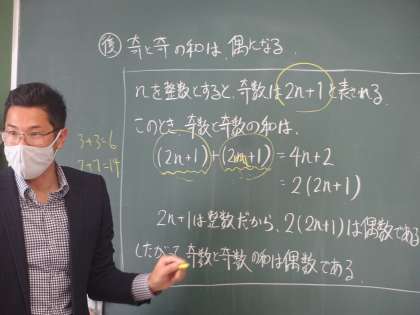 後 奇と奇の和は、偶になる.
nを整数とすると、奇数は2n+1と表される.
このとき、奇数と奇数の和は、
3+3=6
7+7=14
(2n+1)+(2n+1)=4n+2
=2(2n+1)
2n+1は整数だから、2(2n+1)は偶数である
したがって、奇数と奇数の和は偶数である.